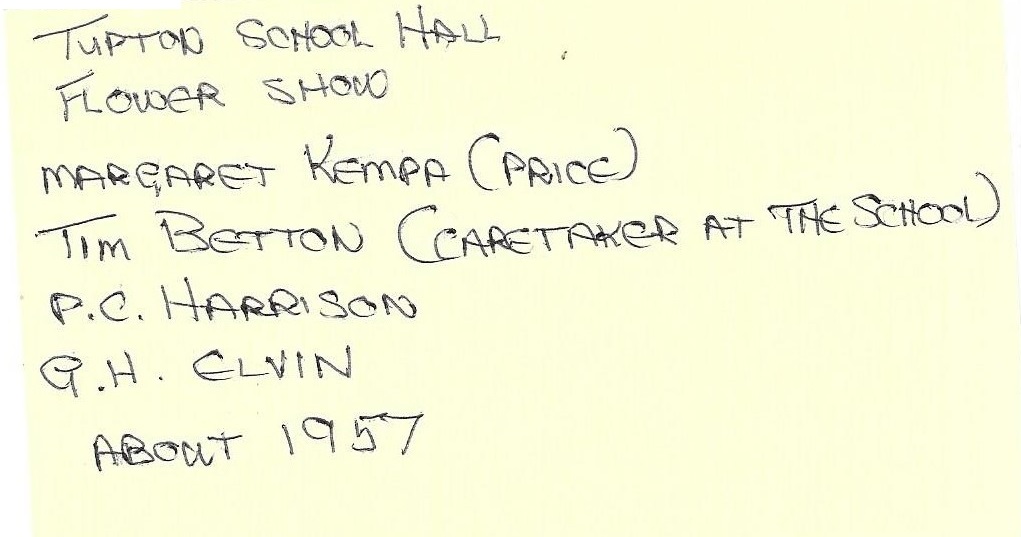 TUPTON SCHOOL HALL
FLOWER SHOW
MARGARET KEMPA (PRICE)
TIM BETTON (CARETAKER AT THE SCHOOL)
P.C. HARRISON
G.H. ELVIN
ABOUT 1957